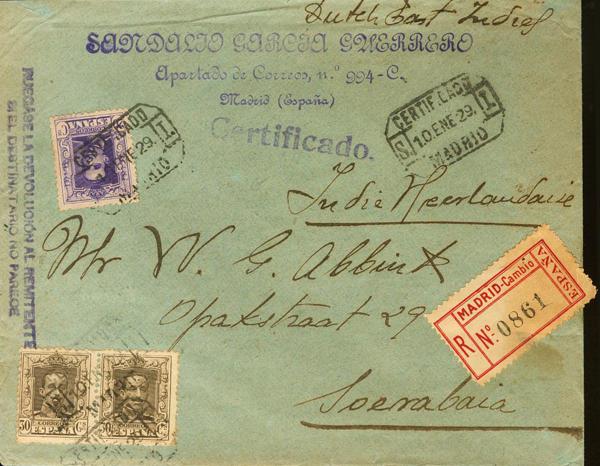 Dutch East Indies
SANDALIO GARCÍA GUERRERO
Apartado de Correos, n.º 994-C.
Madrid (España)
Certificado.
CERTIFICADO
S. 10 ENE 29. 1
MADRID
CERTIFICADO
10 ENE 29. 1
MADRID
CORREOS
ESPAÑA
RUEGASE LA DEVOLUCIÓN AL REMITENTE
SI EL DESTINATARIO NO PARECE
Indie Neerlandaise
Mr W. G. Abbink
Opakstraat 29
Soerabaia
MADRID-Cambio
R Nº 0861
ESPAÑA
CORREOS
30 Cs
ESPAÑA
CORREOS
30 Cs
ESPAÑA